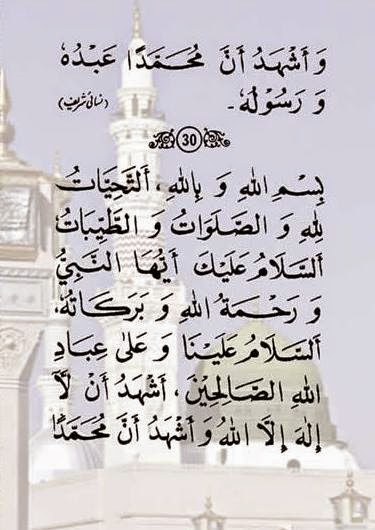 وَ أَشْهَدُ أَنَّ مُحَمَّدًا عَبْدُهٗ
وَ رَسُوْلُهٗ۔ (نسائی شریف)
30
بِسْمِ اللهِ وَ بِاللهِ، اَلتَّحِيَّاتُ
لِلهِ وَ الصَّلَوَاتُ وَ الطَّيِّبَاتُ
اَلسَّلَامُ عَلَيْكَ اَيُّهَا النَّبِيُّ
وَ رَحْمَةُ اللهِ وَ بَرَكَاتُهٗ،
اَلسَّلَامُ عَلَيْنَا وَ عَلٰى عِبَادِ
اللهِ الصَّالِحِيْنَ، اَشْهَدُ اَنْ لَّآ
اِلٰهَ اِلَّا اللهُ وَ اَشْهَدُ اَنَّ مُحَمَّدًا